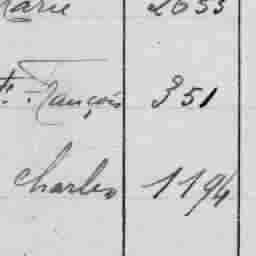 Marie 2633
te. François 351
Charles 1194